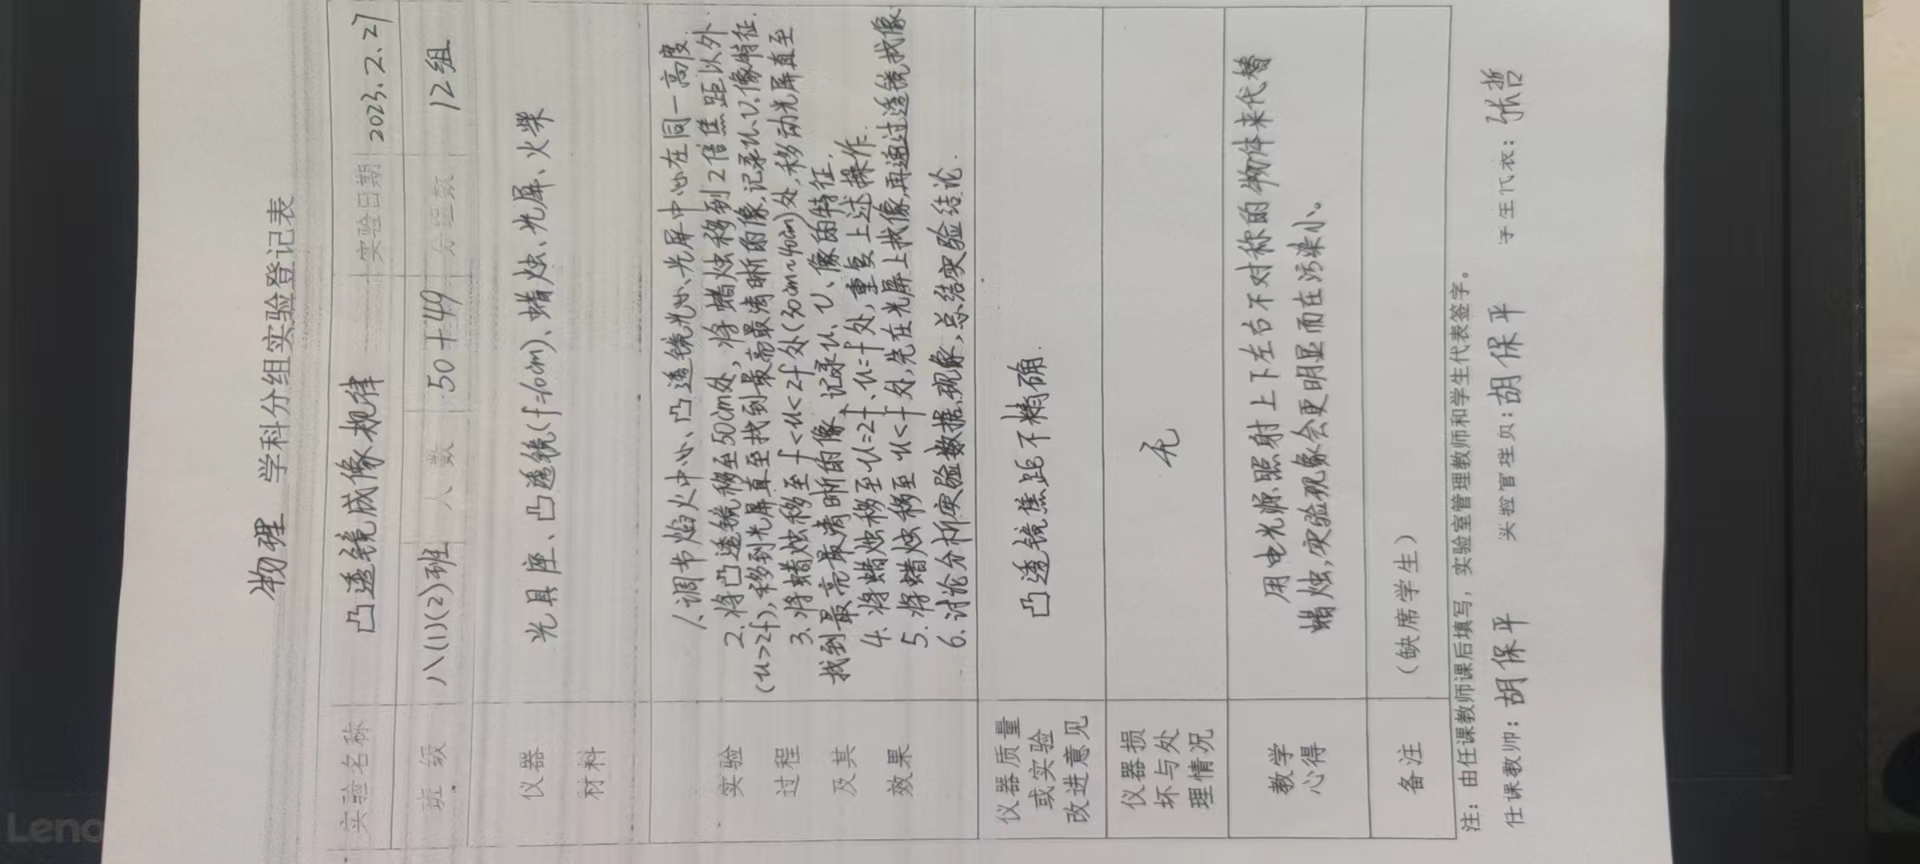 物理 学科分组实验登记表
实验名称 凸透镜成像规律 实验日期 2023.2.27
班级 八(1)(2)班 人数 50+49 分组数 12组
仪器材料 光具座、凸透镜(f=10cm)、蜡烛、光屏、火柴
实验过程及其效果
1.调节焰火中心、凸透镜光心、光屏中心在同一高度.
2.将凸透镜移至50cm处,将蜡烛移到2倍焦距以外
(u>2f),移到光屏直至找到最亮最清晰的像,记录u、v、像特征.
3.将蜡烛移至f<u<2f处(30cm~40cm)处,移动光屏直至
找到最亮最清晰的像,记录u、v、像的特征.
4.将蜡烛移至u=2f、u=f处,重复上述操作.
5.将蜡烛移至u<f处,先在光屏上找像,再通过透镜找像
6.讨论分析实验数据,现象,总结实验结论.
仪器质量或实验改进意见 凸透镜焦距不精确.
仪器损坏与处理情况 无
教学心得
用电光源照射上下左右不对称的物体来代替
蜡烛,实验现象会更明显而在污染小。
备注 (缺席学生)
注:由任课教师课后填写,实验室管理教师和学生代表签字。
任课教师:胡保平 实验管理员:胡保平 学生代表:张哲
Leno